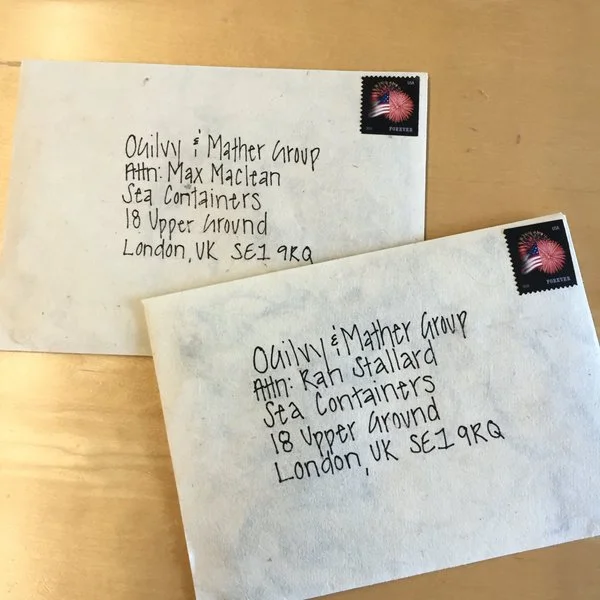 USA
FOREVER
Ogilvy & Mather Group
Attn: Max Maclean
Sea Containers
18 Upper Ground
London, UK SE1 9RQ
USA
FOREVER
Ogilvy & Mather Group
Attn: Rah Stallard
Sea Containers
18 Upper Ground
London, UK SE1 9RQ